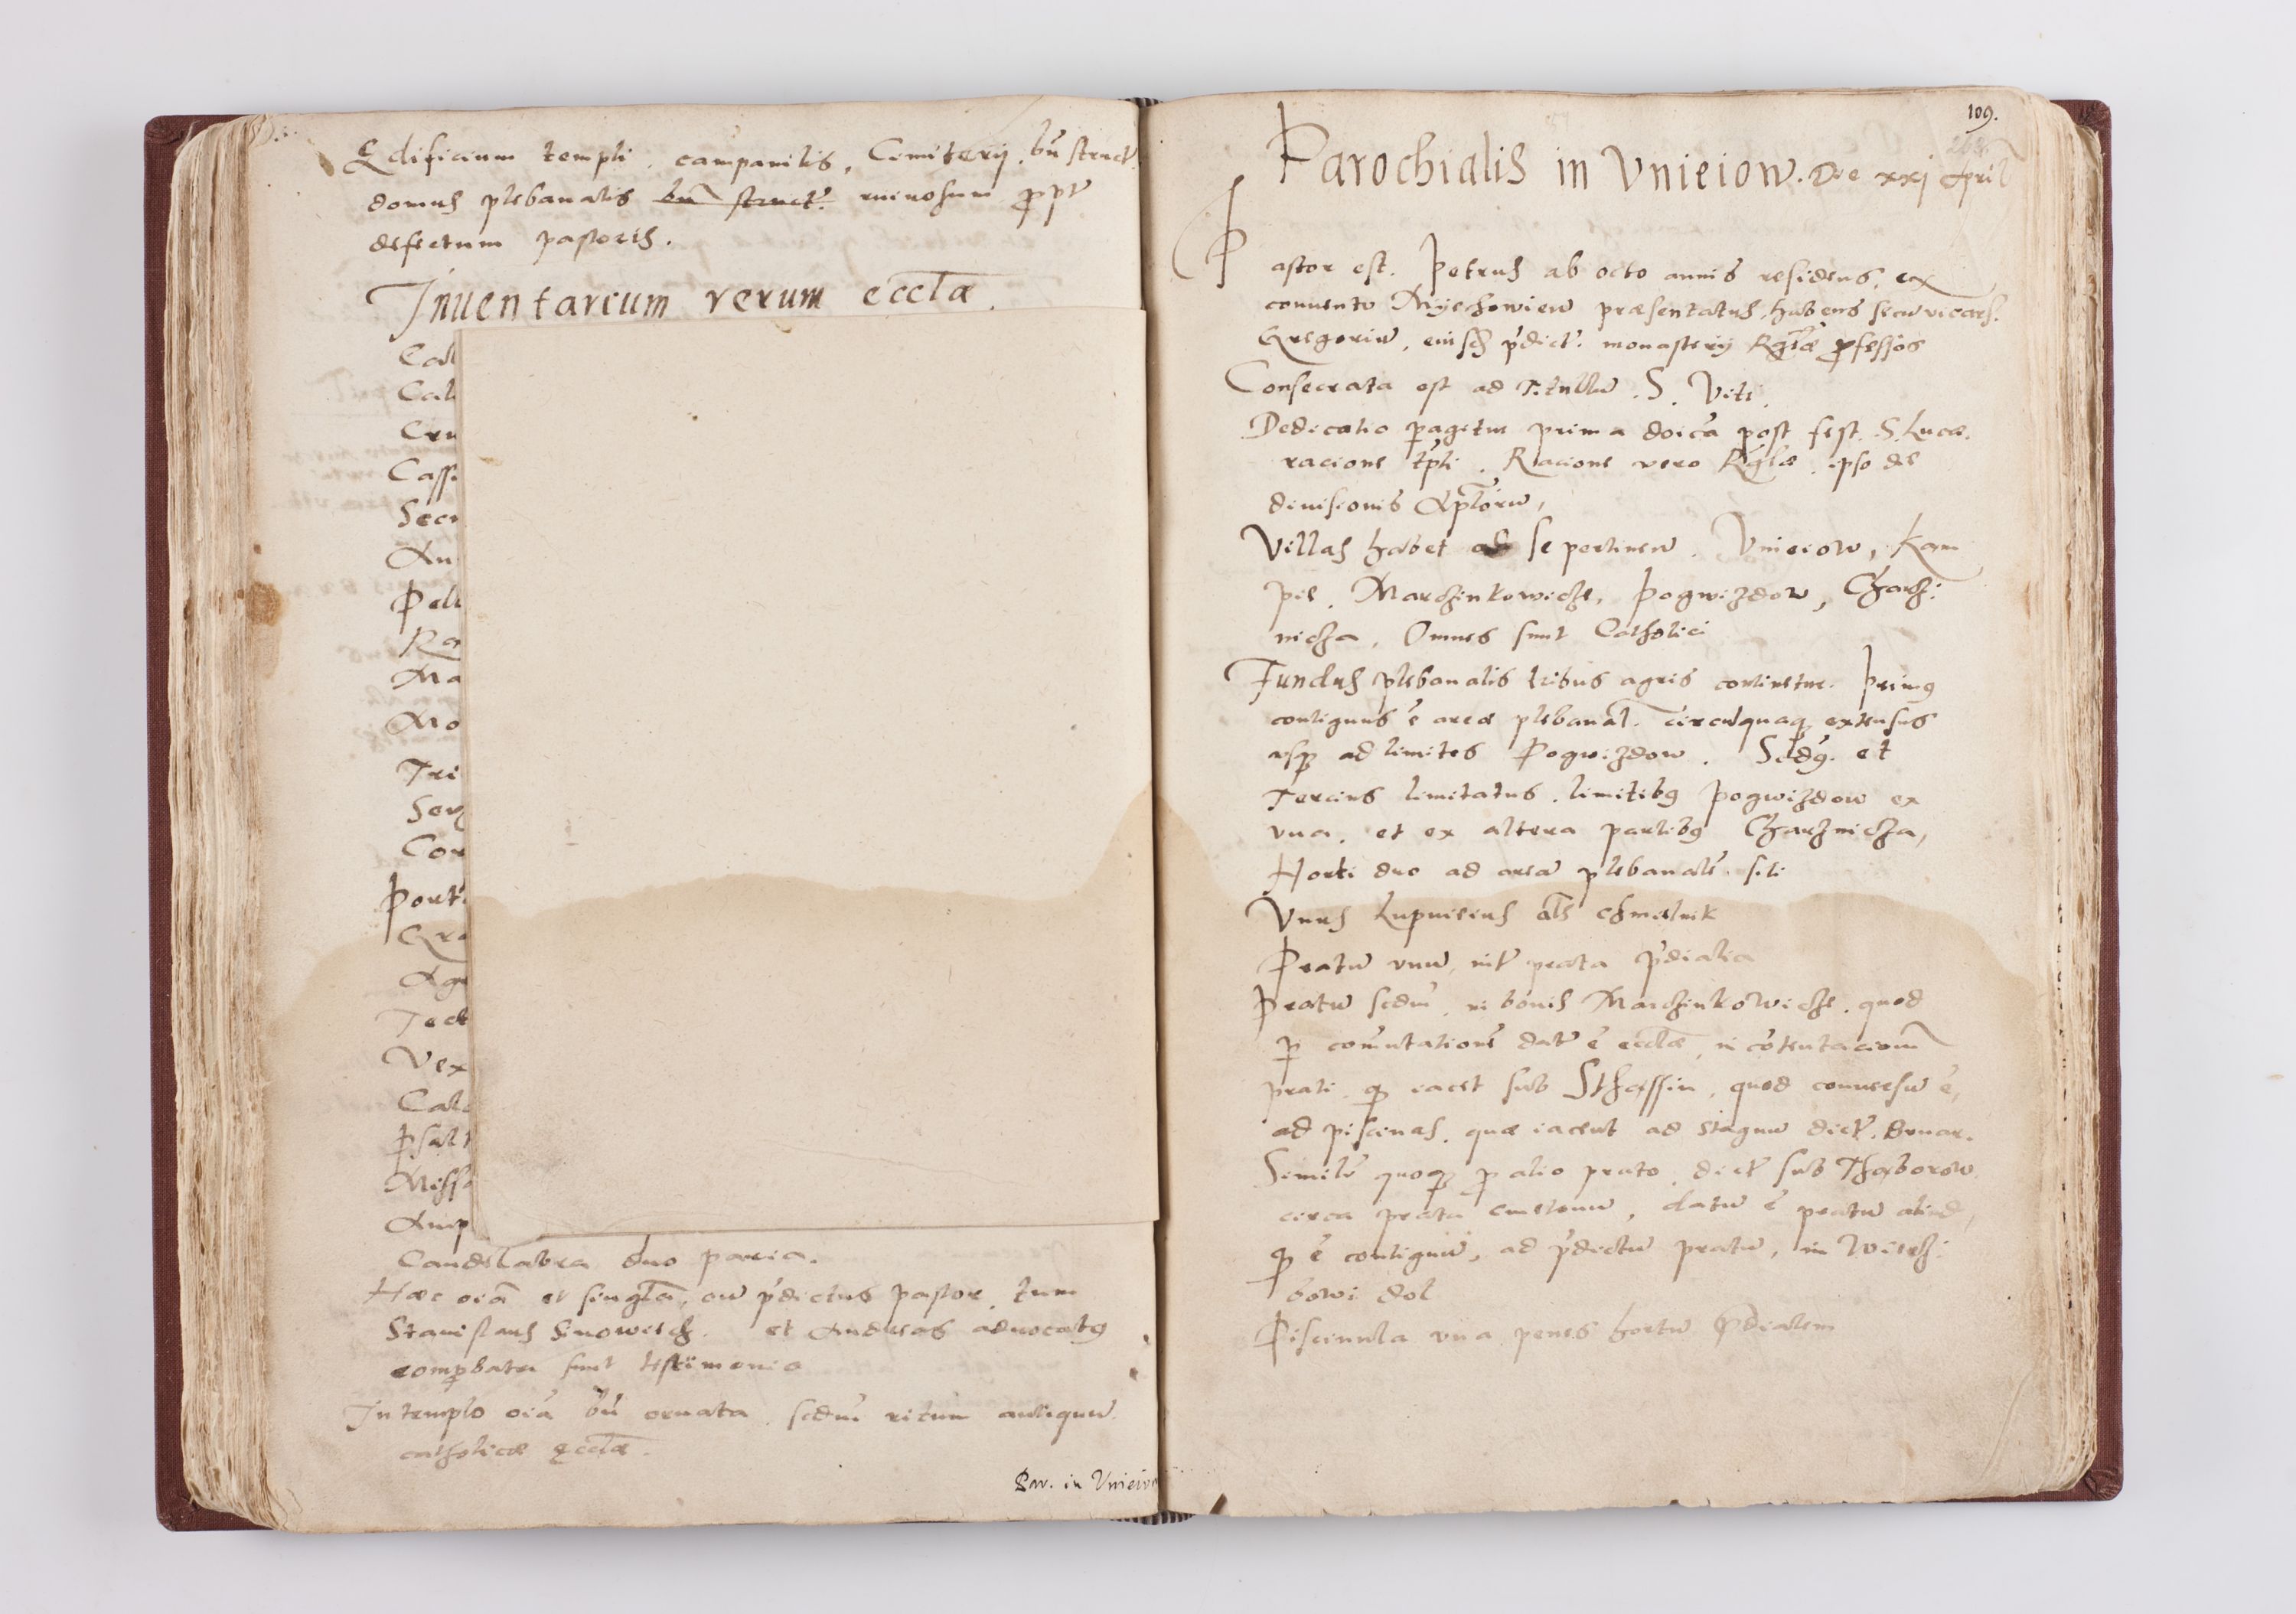 Edificium templi, campanilis, Cimiterij, bñ struct.
domus plebanalis bñ struct. ruinosum ꝓpt̃
defectum pastoris.
Jnuentarium rerum eccl̃æ.
Cal
Cal
Cru
Cass
Secu
An
Pall
Ra
Ma
Mo
Tri
Ser
Cor
Port
Gra
Ag
Tect
Vex
Cald
Psalt
Missa
Amp
Candelabra duo paria.
Hæc oiã et singl̃a, cũ p̃dictus pastor, tum
Stanislaus et Andreas aduocatꝰ
comꝓbata sunt testimonio
Jn templo oiã bñ ornata, scdm̃ ritum antiquũ
catholicæ eccl̃æ.
Par. in Vnieiow
109.
Parochialis in Vnieiow. Die xxj April
Pastor est. Petrus ab octo annis residens, ex
conuento Myechowien præsentatus, habens secũ vicariũ.
Gregoriũ, eiusdẽ p̃dict. monasterij Rgl̃æ ꝓfessos
Consecrata est ad Titullũ. S. Viti.
Dedicatio ꝑagitur prima doĩca post fest. S. Lucæ.
racione tp̃li. Racione vero Rgl̃æ, ipso die
diuisionis Apl̃orũ,
Villas habet ad se pertinen. Vnieiow, Kam
pie, Marczinkowicze, Pogwizdow, Charz:
nicza, Omnes sunt Catholici
Fundus plebanalis tribus agris continetur. Primꝰ
contiguus ẽ areæ plebanal. circũquaqꝫ extensus
usqꝫ ad limites Pogwizdow. Scdꝰ. et
Tercius limitatus, limitibꝰ Pogwizdow ex
vna, et ex altera partibꝰ Charznicza,
Horti duo ad areã plebanalẽ siti
Vnus Lupuleius al̃s chmielnik
Pratũ vnũ, int̃ prata p̃dialia
Pratũ scdm̃, in bonis Marczinkowicze, quod
ꝑ com̃utationẽ dat̃ ẽ eccl̃æ, in cõtentacionẽ
prati, qꝫ iacet sub Sthassin, quod conuersũ ẽ,
ad piscinas, quæ iacent ad stagnũ dict̃. Browar.
Similĩ quoqꝫ ꝓ alio prato, dict̃ sub Thaborow
circa prata cmetonũ, datũ ẽ pratũ aliud,
qꝫ ẽ contiguũ, ad p̃dictũ pratũ, in Wierz:
bowi dol
Piscinula vna penes hortũ p̃dialem